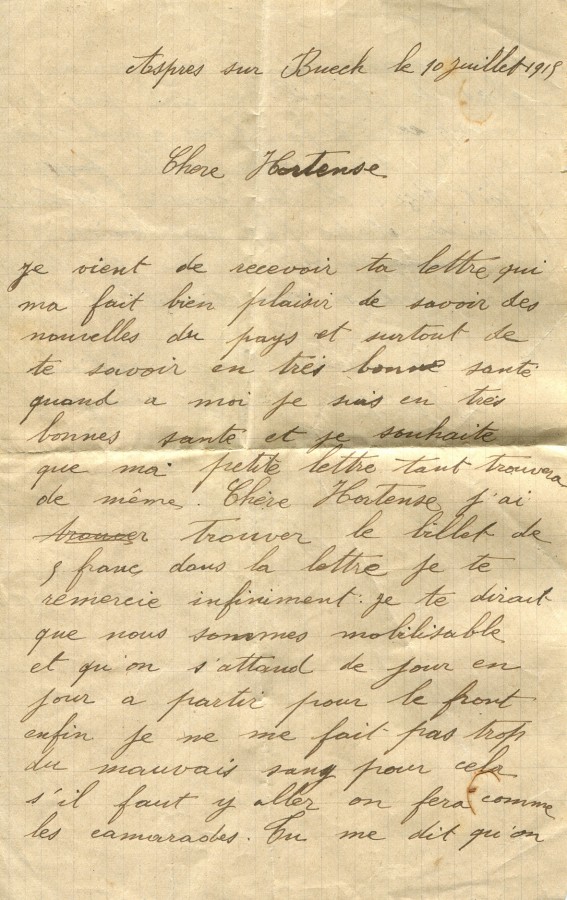 Aspres sur Buech le 10 juillet 1915
Chere Hortense
je vient de recevoir ta lettre qui
ma fait bien plaisir de savoir des
nouvelles du pays et surtout de
te savoir en très bonne santé
quand a moi je suis en très
bonnes santé et je souhaite
que ma petite lettre tant trouvera
de même. Chère Hortense j'ai
trouver trouver le billet de
5 franc dans la lettre je te
remercie infiniment. je te dirait
que nous sommes mobilisable
et qu'on s'attand de jour en
jour a partir pour le front
enfin je ne me fait pas trop
du mauvais sang pour cela
s'il faut y aller on fera comme
les camarades. Tu me dit qu'on